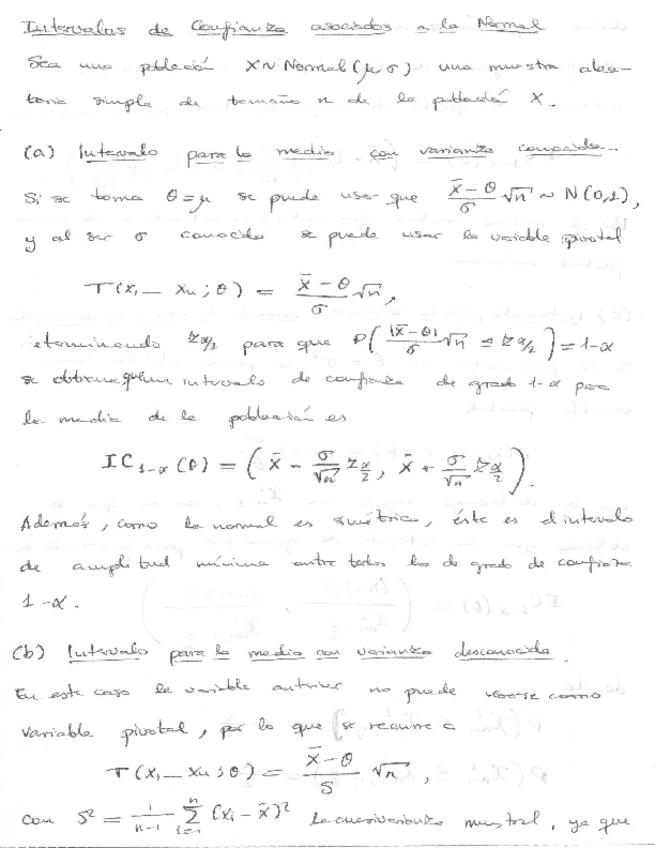 Intervalos de Confianza asociados a la Normal
Sea una población X ~ Normal(μ, σ) una muestra alea-
toria simple de tamaño n de la población X.
(a) Intervalo para la media con varianza conocida.
Si se toma θ = μ se puede usar que (x̄ - θ)/σ √n ~ N(0,1),
y al ser σ conocida se puede usar la variable pivotal
T(x₁ — xₙ; θ) = (x̄ - θ)/σ √n,
eterminando z_{α/2} para que P( |x̄ - θ|/σ √n ≤ z_{α/2} ) = 1-α
se obtiene que un intervalo de confianza de grado 1-α para
la media de la población es
IC_{1-α}(θ) = ( x̄ - σ/√n z_{α/2}, x̄ + σ/√n z_{α/2} ).
Además, como la normal es simétrica, éste es el intervalo
de amplitud mínima entre todos los de grado de confianza
1-α.
(b) Intervalo para la media con varianza desconocida.
En este caso la variable anterior no puede usarse como
variable pivotal, por lo que se recurre a
T(x₁ — xₙ; θ) = (x̄ - θ)/S √n,
con S² = 1/(n-1) Σ_{i=1}^{n} (xᵢ - x̄)² la cuasivarianza muestral, ya que